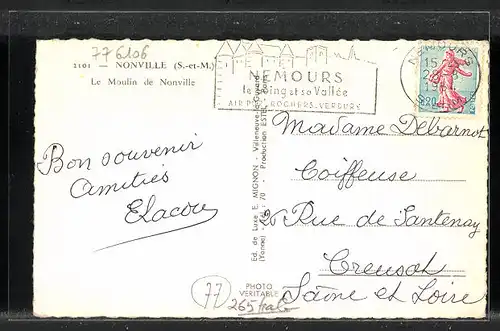 776106
1101 — NONVILLE (S.-et-M.)
Le Moulin de Nonville
NEMOURS
le Loing et sa Vallée
AIR PUR, ROCHERS, VERDURE
NEMOURS
15
0,20
Bon souvenir
Amitiés
Madame Debarnot
Coiffeuse
26 Rue de Santenay
Creusot
Saône et Loire
Ed. de Luxe E. MIGNON - Villeneuve-la-Guyard
(Yonne) - Tél. : 70 - Production ESTEL
PHOTO
VERITABLE
77
265